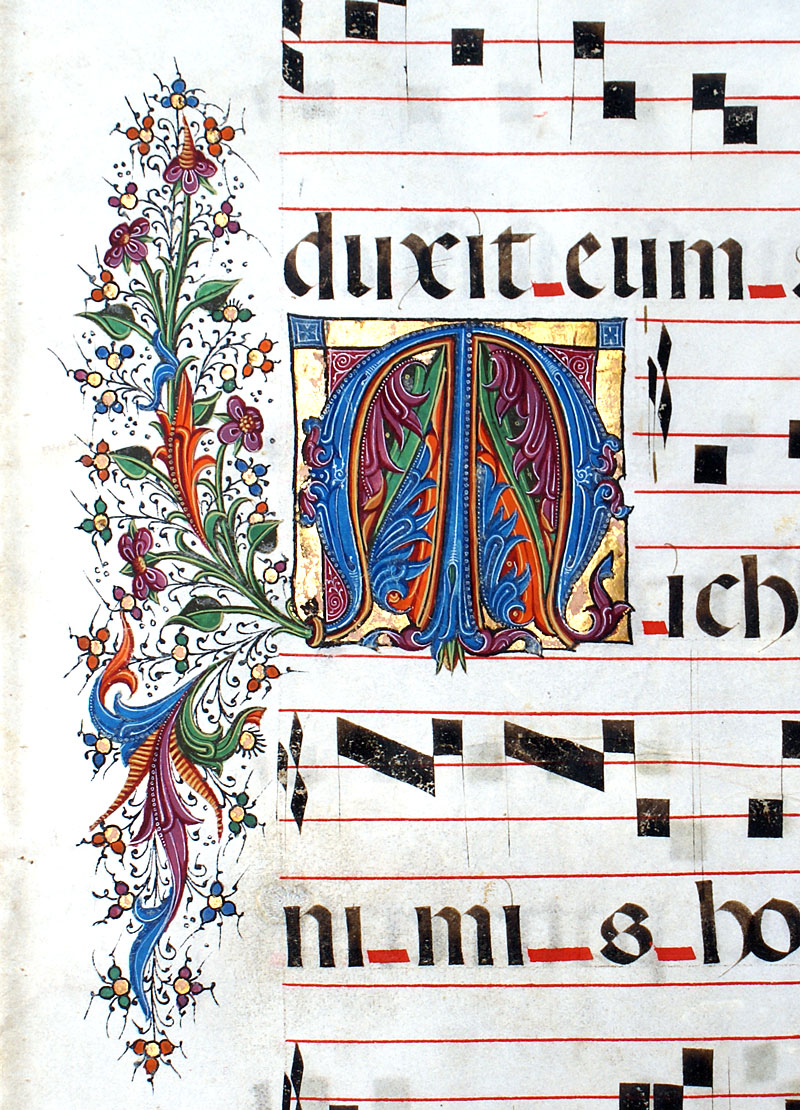 duxit eum
Mich
nimis ho